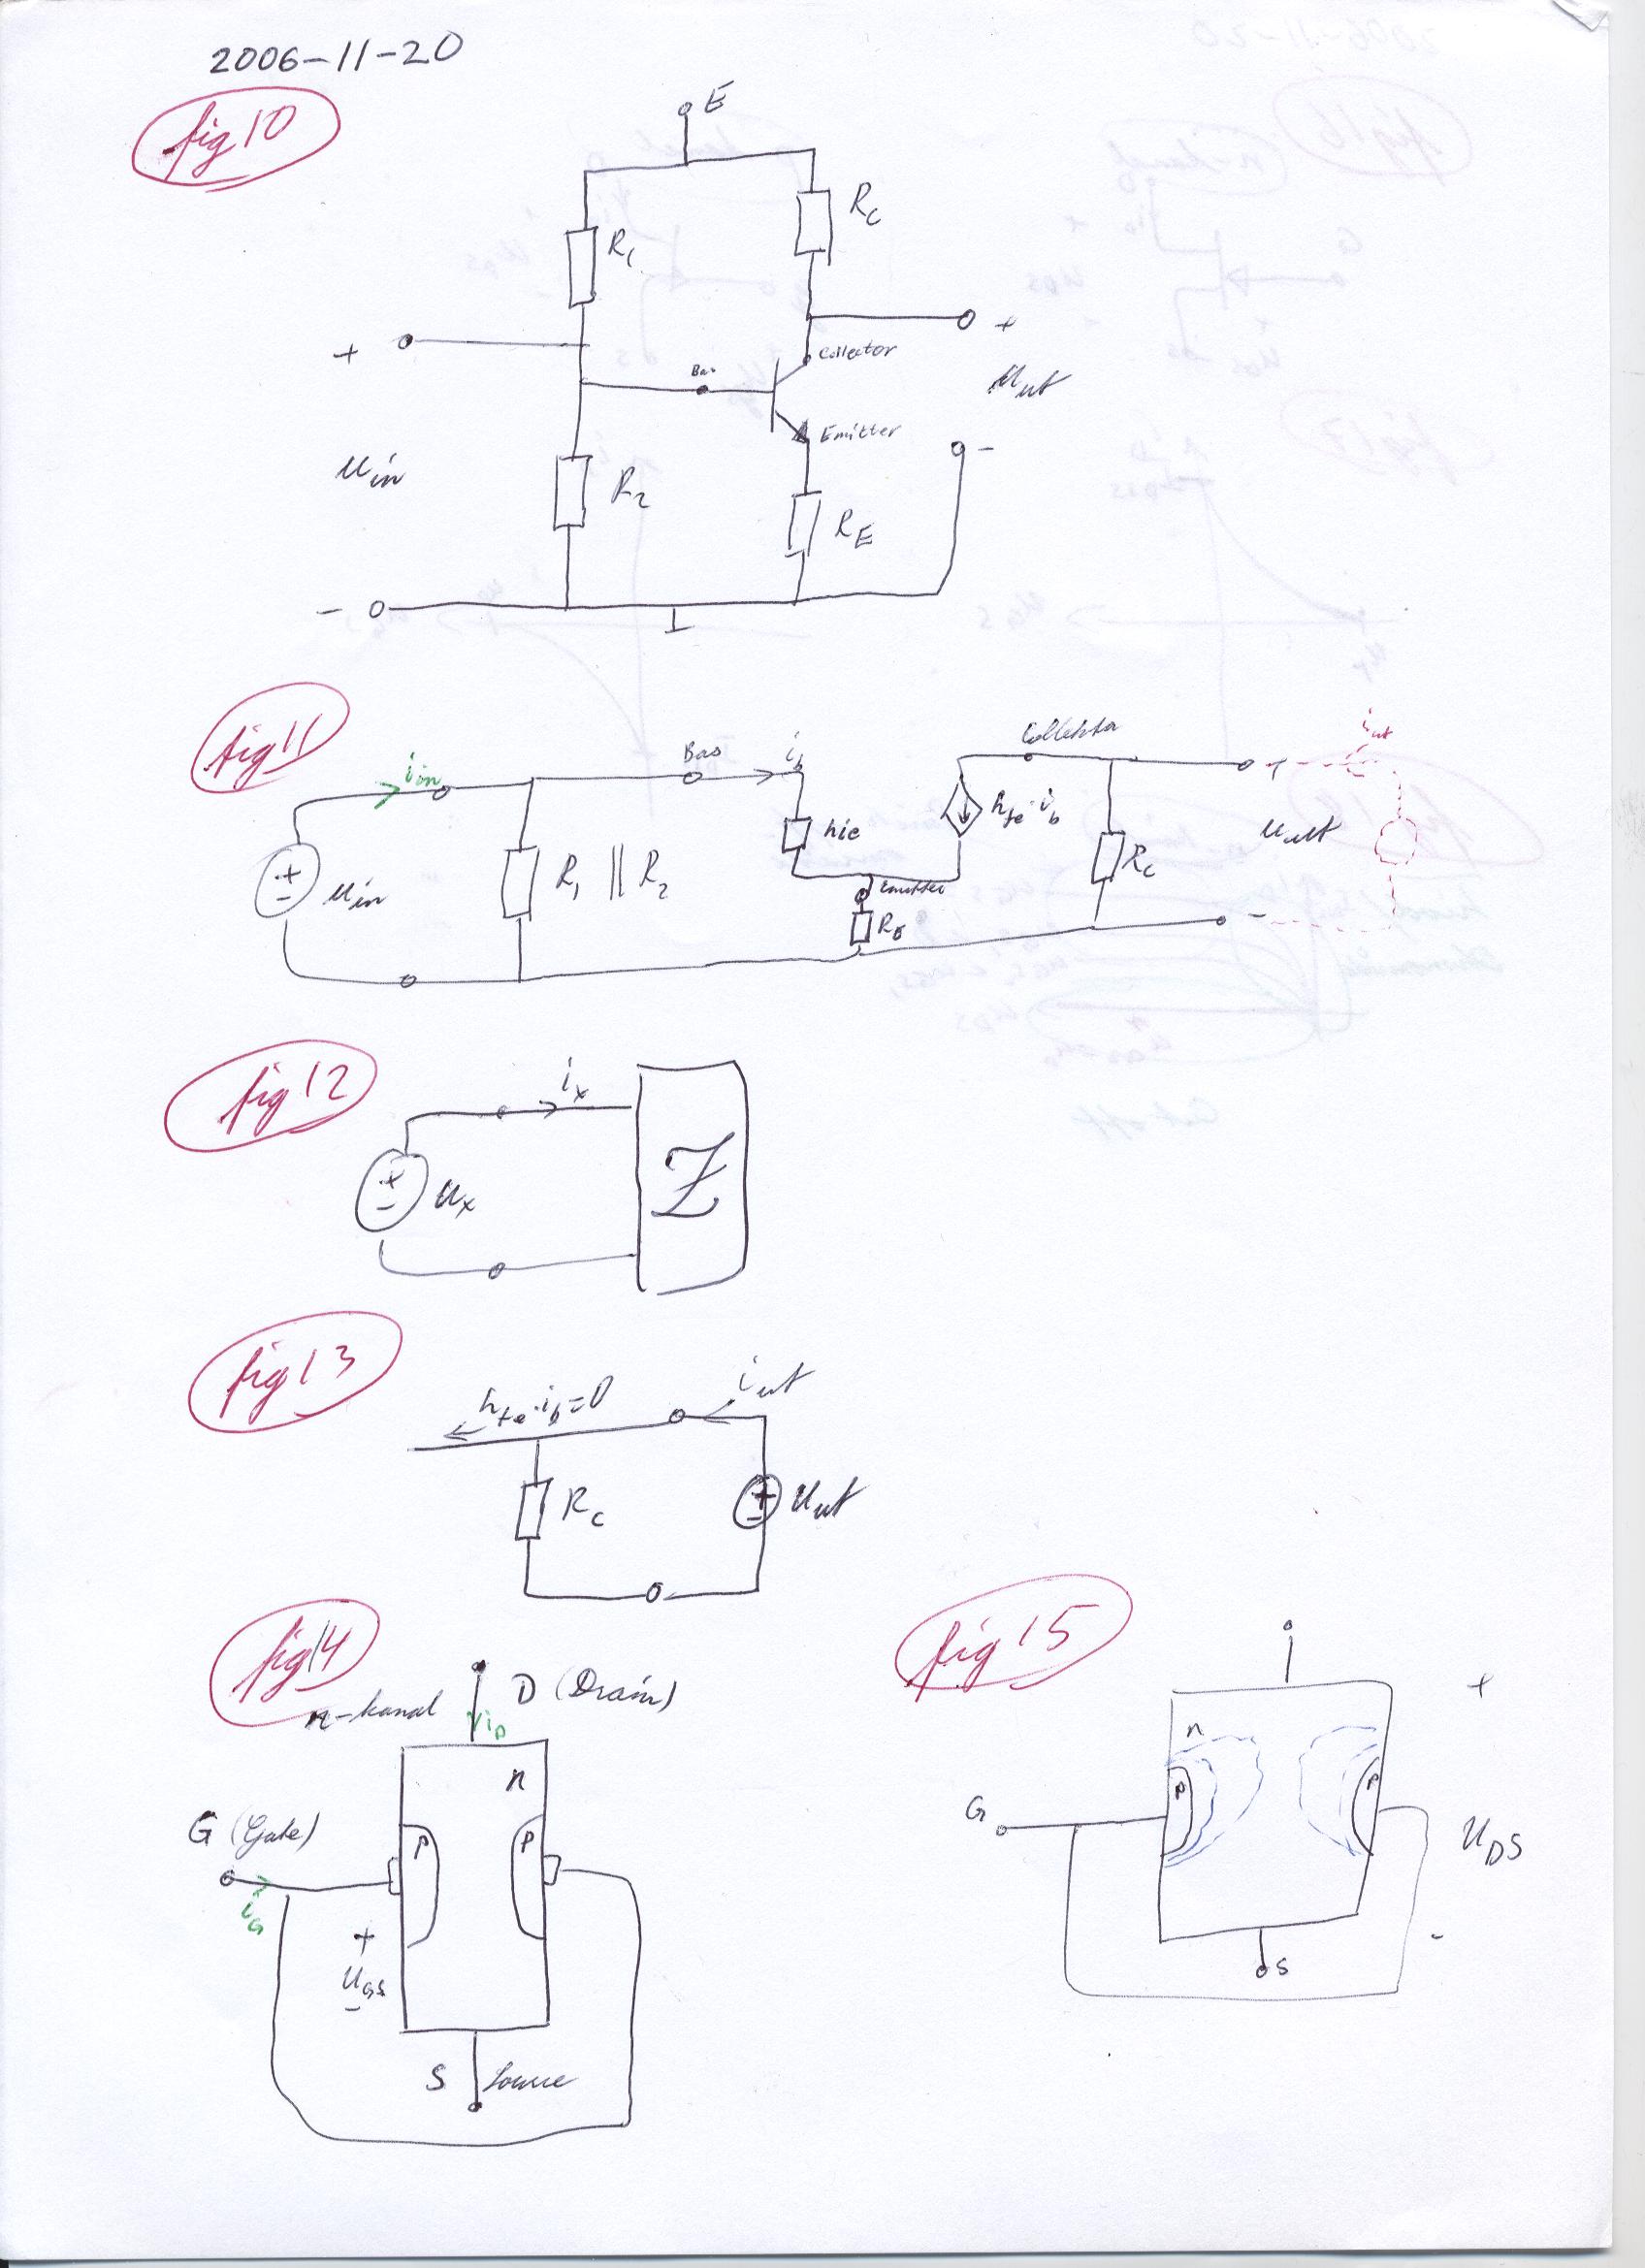 2006-11-20
fig 10
E
R1
RC
+
+
Collector
Bas
Uut
Emitter
-
Uin
R2
RE
-
fig 11
iin
Bas
ib
Collektor
+
iut
hie
hfe·ib
Uut
+
-
Uin
R1 || R2
Emitter
RC
RE
-
fig 12
ix
+
-
Ux
Z
fig 13
hfe·ib=0
iut
RC
+
-
Uut
fig 14
n-kanal
D (Drain)
iD
n
G (Gate)
P
P
iG
+
UGS
-
S
Source
fig 15
+
n
P
P
G
UDS
-
S